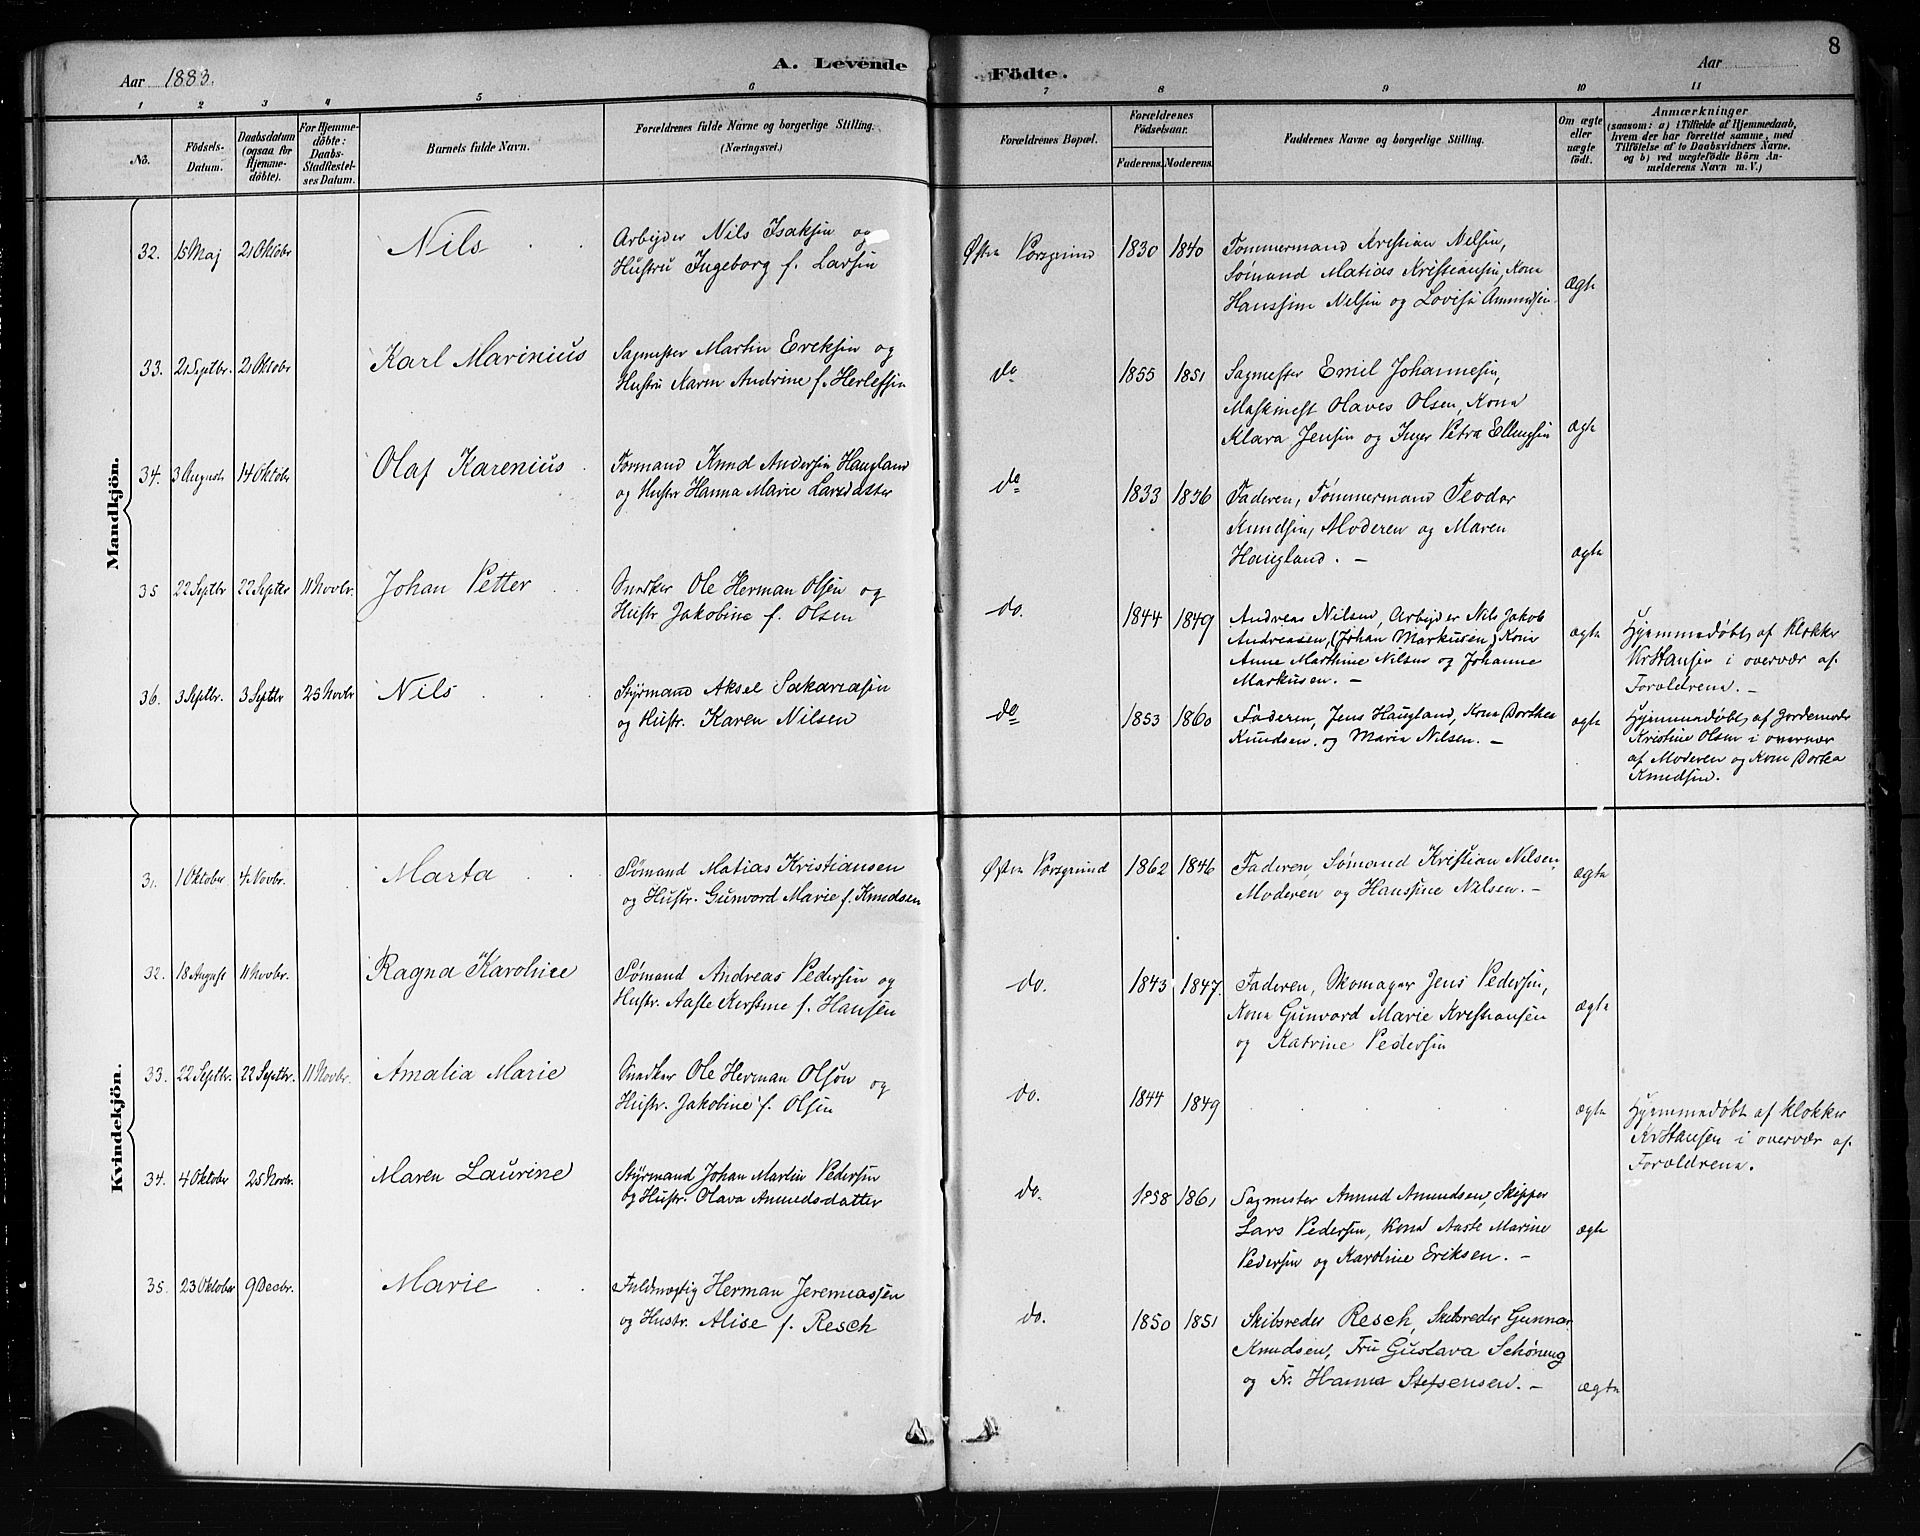 8
Aar 1883.
A. Levende
Födte.
Aar
1 2 3 4 5 6 7 8 9 10 11
No.
Födsels-Datum.
Daabsdatum (ogsaa for Hjemmedöbte).
For Hjemmedöbte: Daabs-Stadfestelses Datum.
Barnets fulde Navn.
Forældrenes fulde Navne og borgerlige Stilling.
(Næringsvei.)
Forældrenes Bopæl.
Forældrenes Födselsaar.
Faderens. Moderens.
Faddernes Navne og borgerlige Stilling.
Om ægte eller uægte födt.
Anmærkninger
(saasom: a) i Tilfælde af Hjemmedaab,
hvem der har forrettet samme, med
Tilföielse af to Daabsvidners Navne.
og b) ved uægtefödte Börn An-
melderens Navn m. V.)
Mandkjön.
32. 15 Maj 21 Oktobr Nils Arbejder Nils Isaksen og
Hustru Ingeborg f. Larsen
Østre Porsgrund 1830 1840 Tømmermand Kristian Nelsen,
Sømand Matias Kristiansen, Kone
Hanssine Nelsen og Lovise Amundsen ægte
33. 21 Septbr. 21 Oktobr Karl Marinius Sagmester Martin Eriksen og
Hustru Karen Andrine f. Herlefsen
do 1855 1851 Sagmester Emil Johannesen,
Maskinest Olaves Olsen, Kone
Klara Jensen og Inger Petra Ellengsen ægte
34. 3 August 14 Oktobr Olaf Karenius Formand Knud Andersen Haugland
og Hustr Hanna Marie Larsdatter
do 1833 1846 Faderen, Tømmermand Teodor
Knudsen, Moderen og Maren
Haugland. – ægte
35 22 Septbr 22 Septbr 11 Novbr. Johan Petter Snedker Ole Herman Olsen og
Hustr Jakobine f. Olsen
do. 1844 1849 Andreas Nilsen, Arbejder Nils Jakob
Andreasen, (Johan Markusen) Kone
Anne Marthine Nilsen og Johanne
Markusen. – ægte Hjemmedøbt af Klokker
Kr Hansen i overvær af
Forældrene. –
36. 3 Septbr. 3 Septbr 25 Novbr Nils Styrmand Aksel Sakariasen
og Hustr. Karen Nilsen
do 1853 1860 Faderen, Jens Haugland, Kone Dorthea
Knudsen. og Maria Nilsen. – ægte Hjemmedøbt af Jordemoder
Kristine Olsen i overvær
af Moderen og Kone Dortea
Knudsen.
Kvindekjön.
31. 1 Oktober 4 Novbr. Marta Sømand Matias Kristiansen
og Hustr. Gunvord Marie f. Knudsen
Østre Porsgrund 1862 1846 Faderen, Sømand Kristian Nilsen,
Moderen og Hanssine Nilsen. – ægte
32. 18 August 11 Novbr. Ragna Karoline Sømand Andreas Pedersen og
Hustr. Aaste Kirstine f. Hansen
do. 1843 1847. Faderen, Skomager Jens Pedersen,
Kone Gunvord Marie Kristiansen
og Katrine Pedersen ægte
33. 22 Septbr. 22 Septbr. 11 Novbr. Amalia Marie Snedker Ole Herman Olsøn og
Hustr. Jakobine f. Olsen
do. 1844 1849 ægte Hjemmedøbt af Klokker
Kr Hansen i overvær af
Forældrene.
34. 4 Oktober 25 Novbr. Maren Laurine Styrmand Johan Martin Pedersen
og Hustr. Olava Amundsdatter
do. 1858 1861 Sagmester Amund Amundsen, Skipper
Lars Pedersen, Kone Aaste Marine
Pedersen og Karoline Eriksen. – ægte
35. 23 Oktober 9 Decbr. Marie Fuldmægtig Herman Jeremiassen
og Hustr. Alise f. Resch
do. 1850 1851 Skibsreder Resch, Skibsreder Gunnar
Knudsen, Fru Gustava Schøning
og Fr. Hanna Stefsensen. – ægte